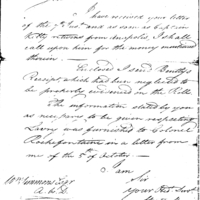 Sir
I have received your letter
of the 7th Inst. and as soon as Capt.
Kitty returns from Anapolis, I shall
call upon him for the money mentioned
therein —
Enclosed I send Bently's
Receipt which had been neglected to
be properly endorsed on the Bills.
The information stated by you
as necessary to be given respecting
was furnished to Colonel
Rochefontain in a letter from
me of the 5th of October.—
I am
Sir
Wm Simmons Esqr
your Obed. Servt.